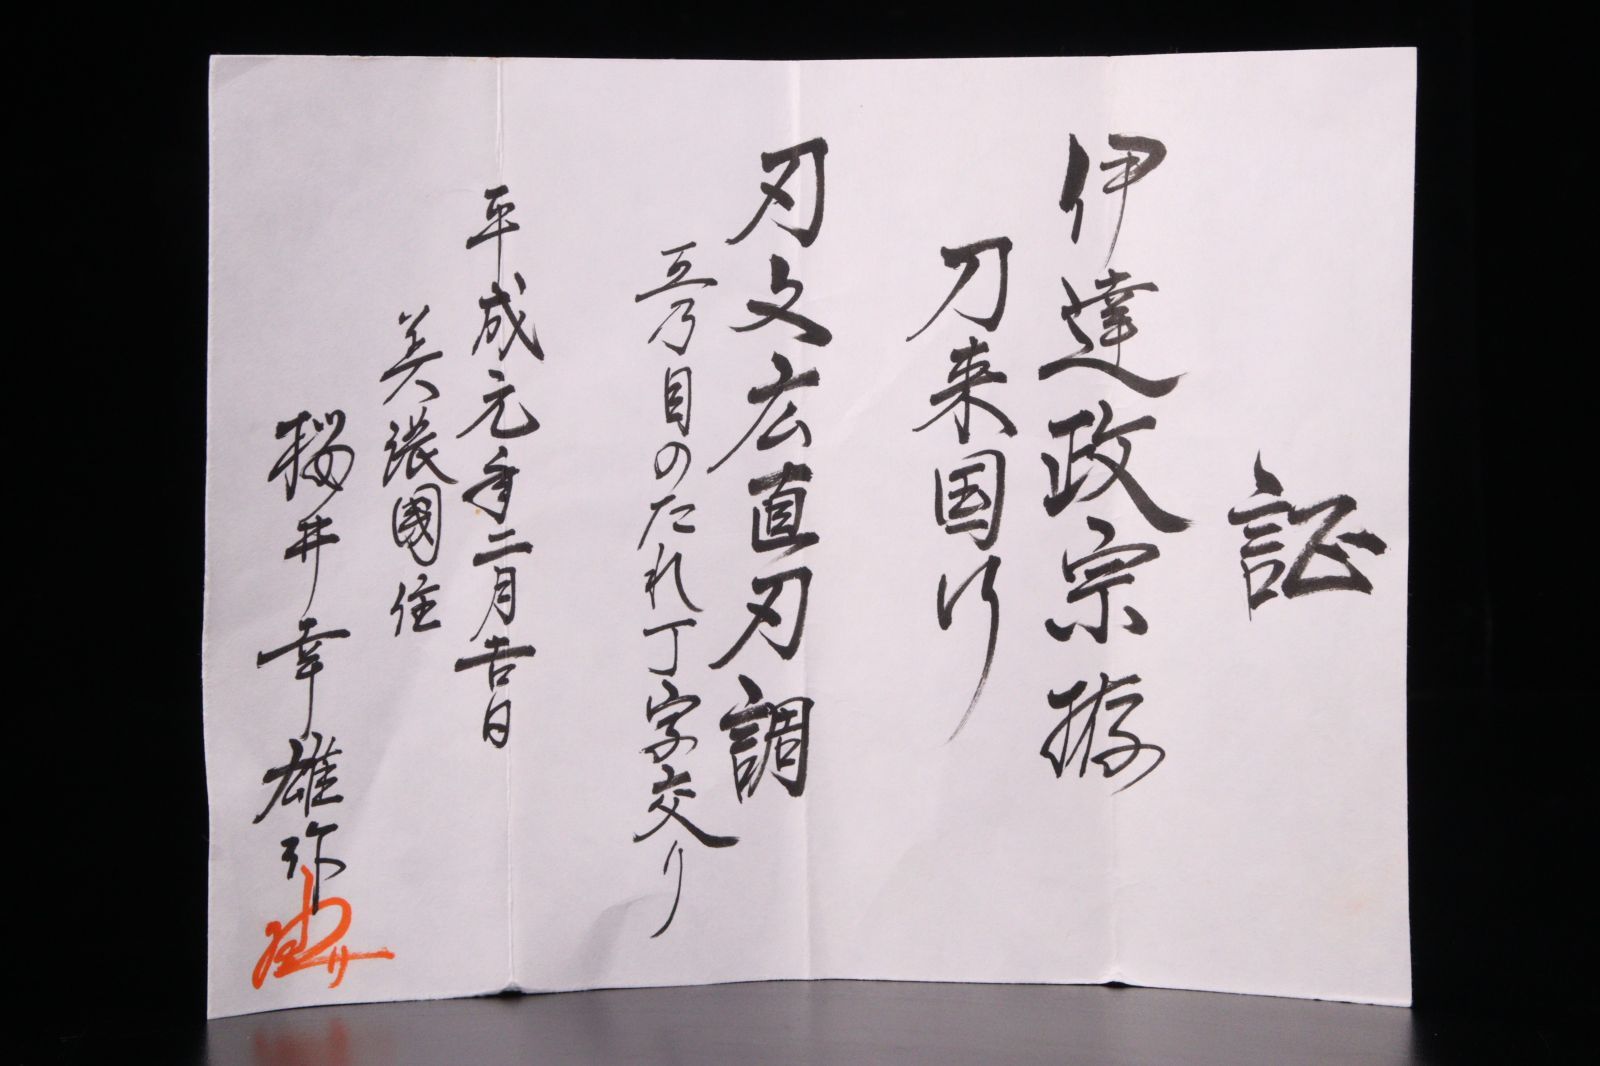 証
伊達政宗拵
刀来国行
刃文広直刃調
互乃目のたれ丁字交り
平成元年二月吉日
美濃國住
櫻井幸雄作